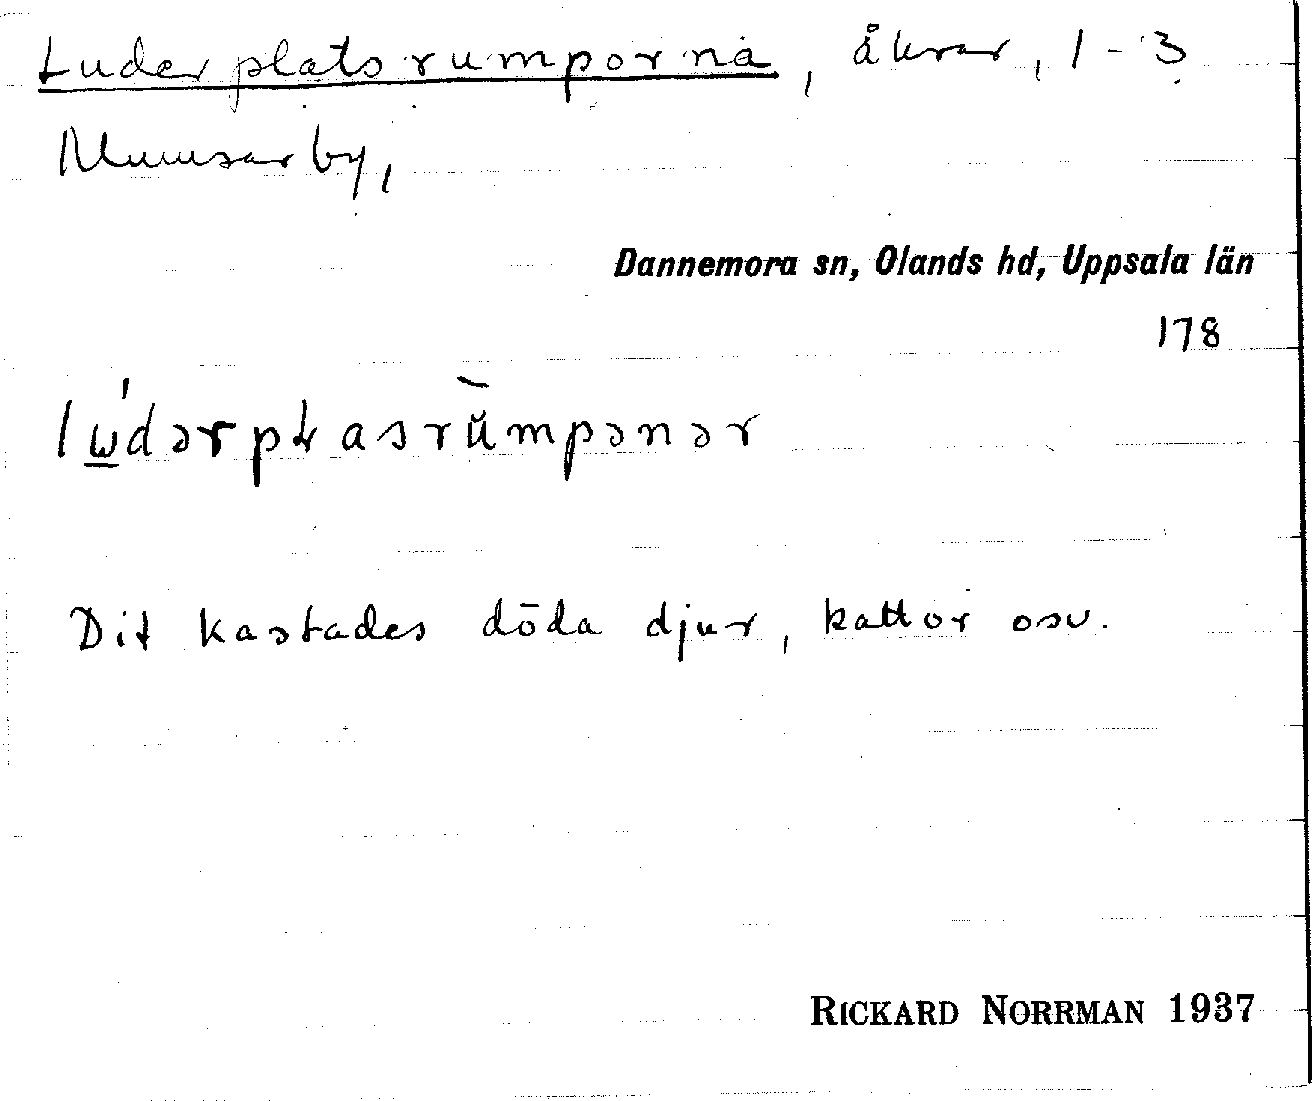 Luderplatsrumporna, åkrar, 1-3
Mumsarby,
Dannemora sn, Olands hd, Uppsala län
178
Dit kastades döda djur, kattor osv.
RICKARD NORRMAN 1937